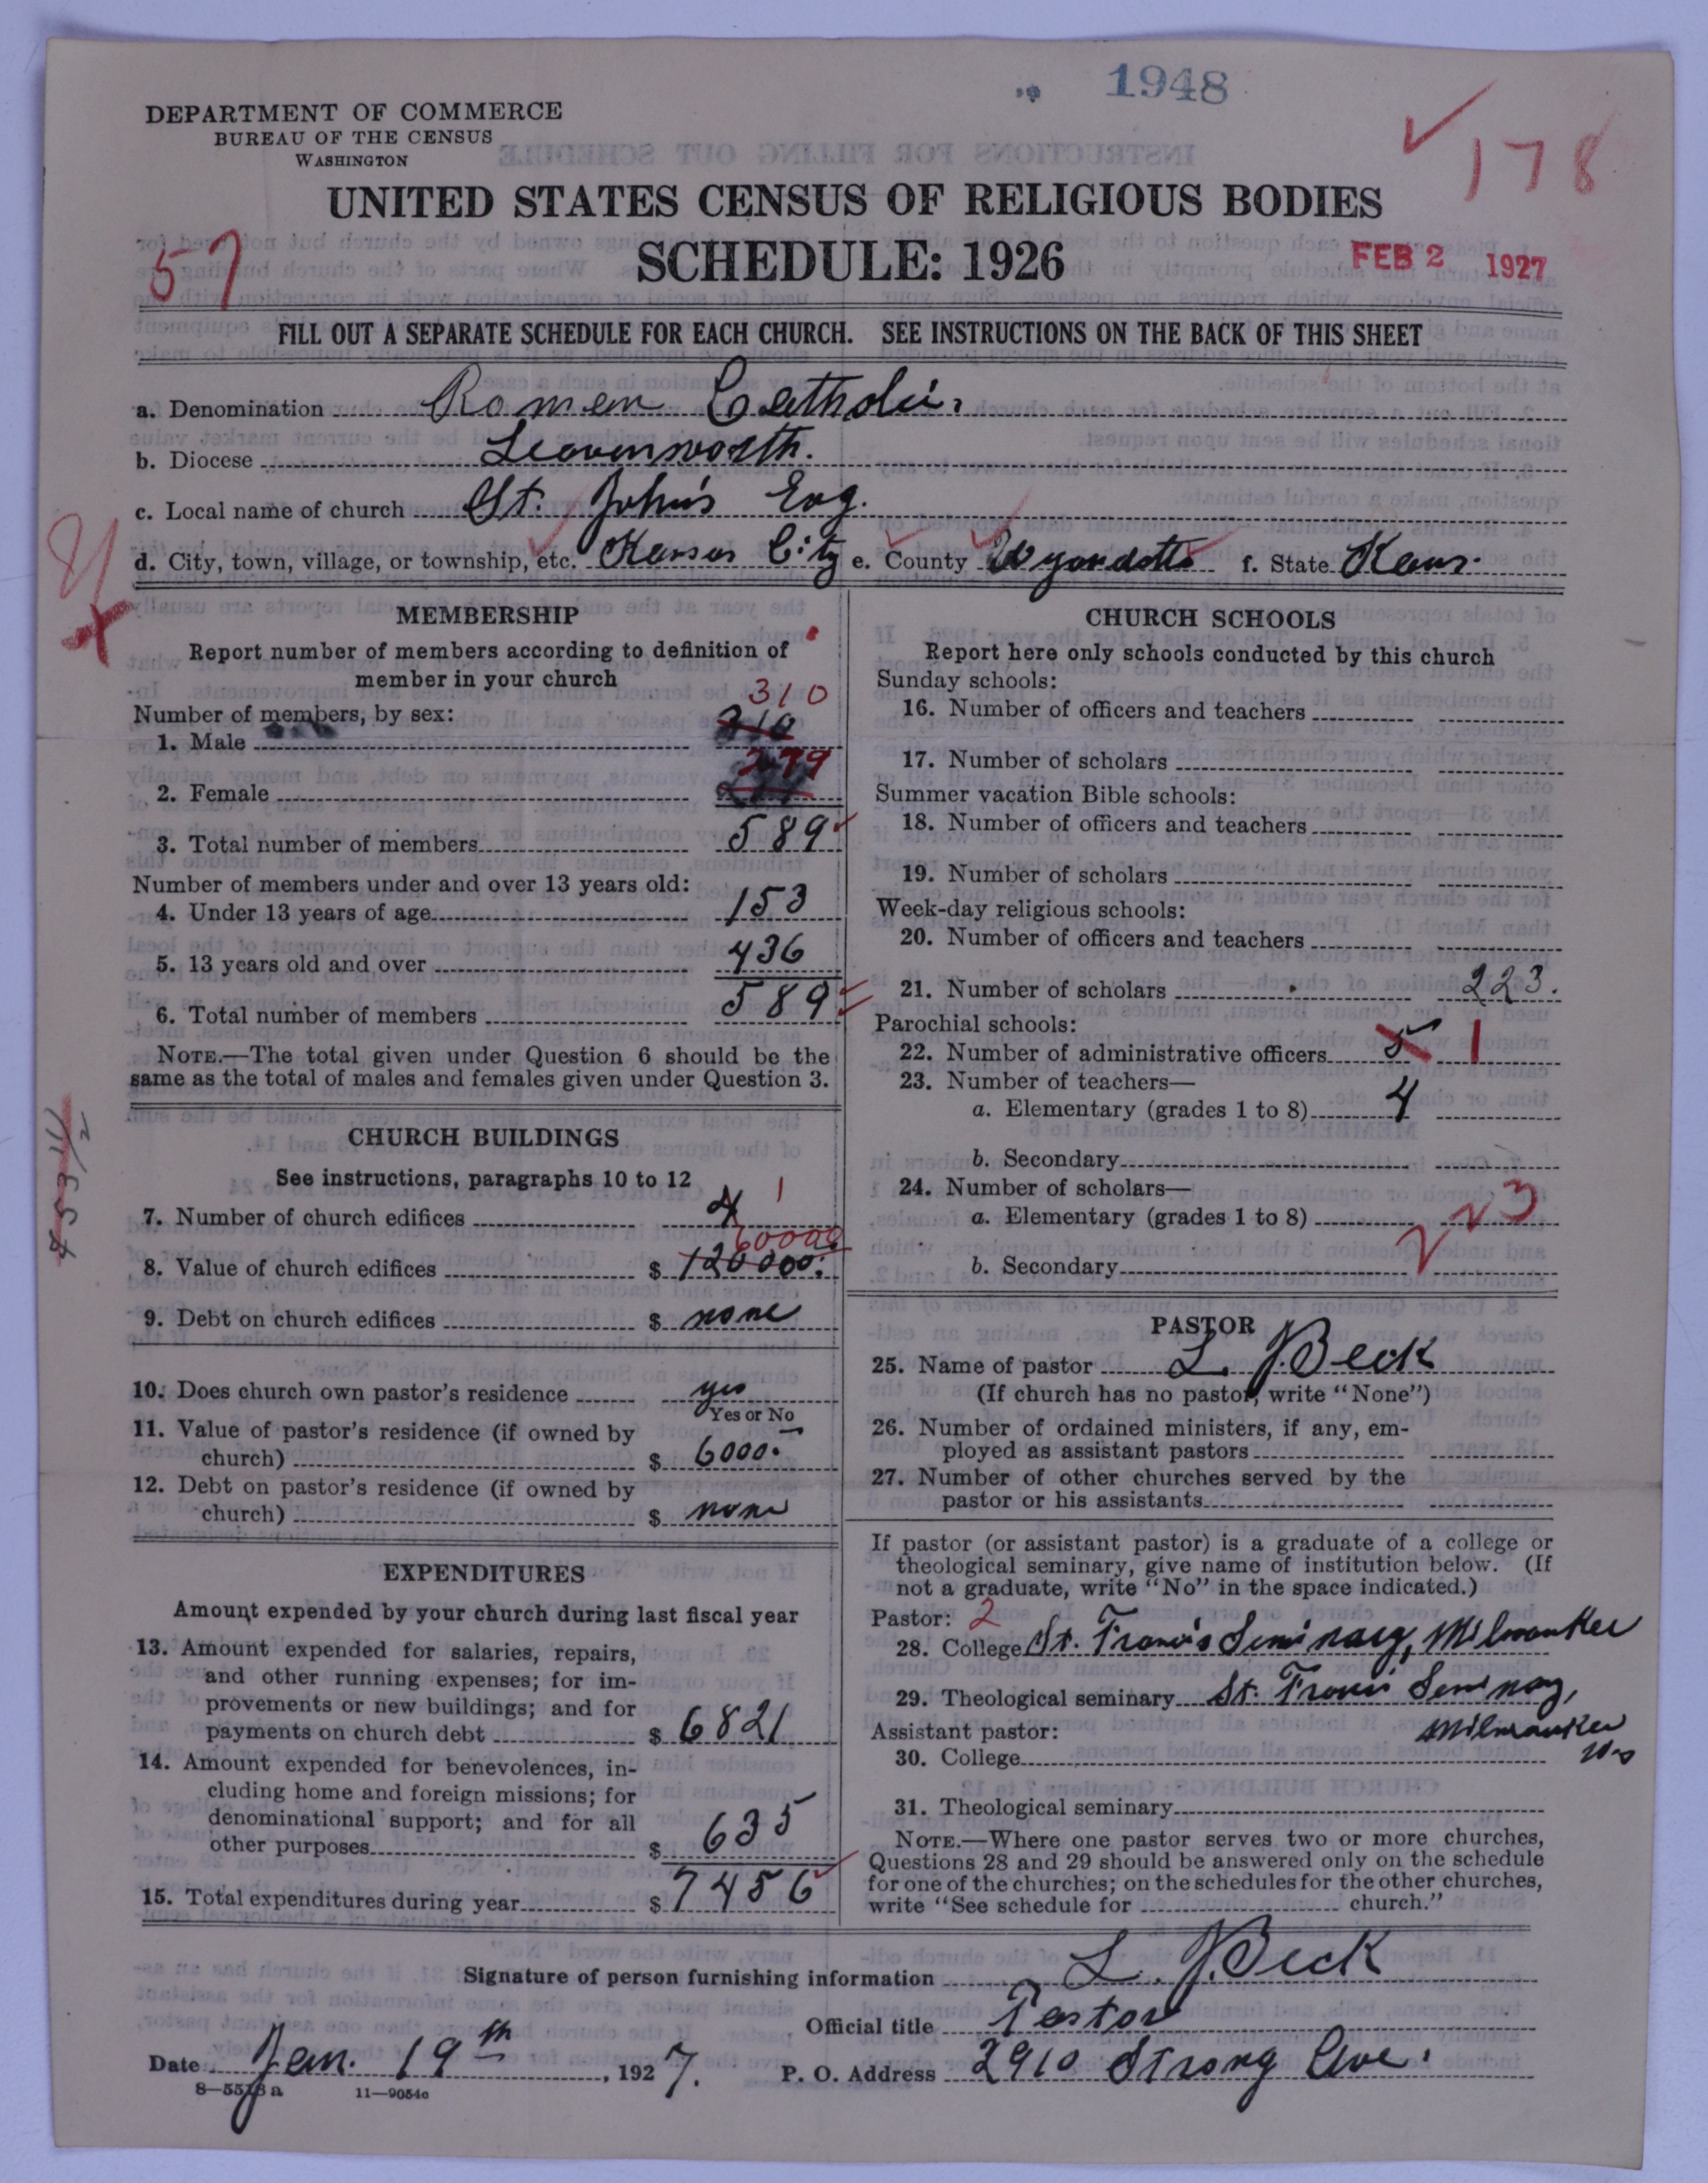 1948
DEPARTMENT OF COMMERCE
BUREAU OF THE CENSUS
WASHINGTON
178
UNITED STATES CENSUS OF RELIGIOUS BODIES
SCHEDULE: 1926
57
FEB 2 1927
FILL OUT A SEPARATE SCHEDULE FOR EACH CHURCH. SEE INSTRUCTIONS ON THE BACK OF THIS SHEET
a. Denomination Roman Catholic.
b. Diocese Leavenworth.
c. Local name of church St. John's Evg.
d. City, town, village, or township, etc. Kansas City e. County Wyandotte f. State Kans.
MEMBERSHIP
Report number of members according to definition of
member in your church
310
Number of members, by sex:
1. Male 310
279
2. Female
3. Total number of members 589
Number of members under and over 13 years old:
4. Under 13 years of age 153
5. 13 years old and over 436
6. Total number of members 589
NOTE.—The total given under Question 6 should be the
same as the total of males and females given under Question 3.
CHURCH BUILDINGS
See instructions, paragraphs 10 to 12
7. Number of church edifices 4 1
60000
8. Value of church edifices $ 120000.
9. Debt on church edifices $ none
10. Does church own pastor's residence yes
Yes or No
11. Value of pastor's residence (if owned by
church) $ 6000.
12. Debt on pastor's residence (if owned by
church) $ none
EXPENDITURES
Amount expended by your church during last fiscal year
13. Amount expended for salaries, repairs,
and other running expenses; for im-
provements or new buildings; and for
payments on church debt $ 6821
14. Amount expended for benevolences, in-
cluding home and foreign missions; for
denominational support; and for all
other purposes $ 635
15. Total expenditures during year $ 7456
CHURCH SCHOOLS
Report here only schools conducted by this church
Sunday schools:
16. Number of officers and teachers
17. Number of scholars
Summer vacation Bible schools:
18. Number of officers and teachers
19. Number of scholars
Week-day religious schools:
20. Number of officers and teachers
21. Number of scholars 223.
Parochial schools:
22. Number of administrative officers 5 1
23. Number of teachers—
a. Elementary (grades 1 to 8) 4
b. Secondary
24. Number of scholars—
a. Elementary (grades 1 to 8) 223
b. Secondary
PASTOR
25. Name of pastor L. J. Beck
(If church has no pastor, write "None")
26. Number of ordained ministers, if any, em-
ployed as assistant pastors
27. Number of other churches served by the
pastor or his assistants
If pastor (or assistant pastor) is a graduate of a college or
theological seminary, give name of institution below. (If
not a graduate, write "No" in the space indicated.)
Pastor: 2
28. College St. Francis Seminary, Milwaukee
29. Theological seminary St. Francis Seminary,
Milwaukee
Wis
Assistant pastor:
30. College
31. Theological seminary
NOTE.—Where one pastor serves two or more churches,
Questions 28 and 29 should be answered only on the schedule
for one of the churches; on the schedules for the other churches,
write "See schedule for church."
Signature of person furnishing information L. J. Beck
Official title Pastor
Date Jan. 19th, 1927. P. O. Address 2910 Strong Ave.
8—5513 a 11—9054c